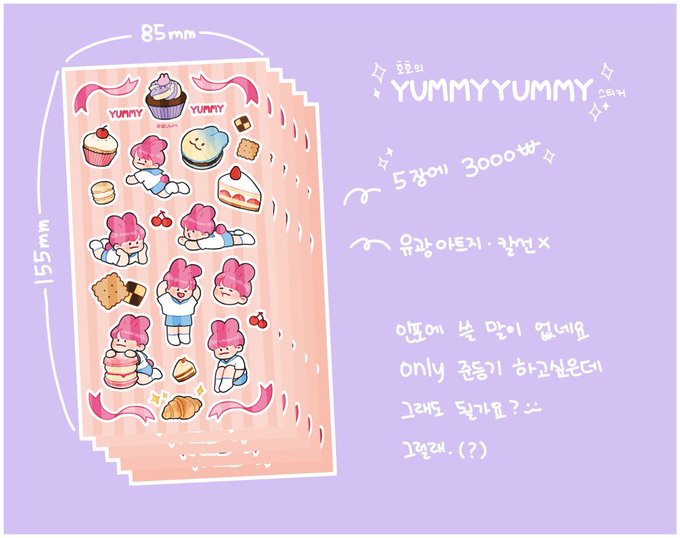 85mm
155mm
YUMMY YUMMY
호호의
YUMMYYUMMY 스티커
5장에 3000₩
유광아트지·칼선X
인포에 쓸 말이 없네요
only 준등기 하고싶은데
그래도 될가요?
그럴래.(?)